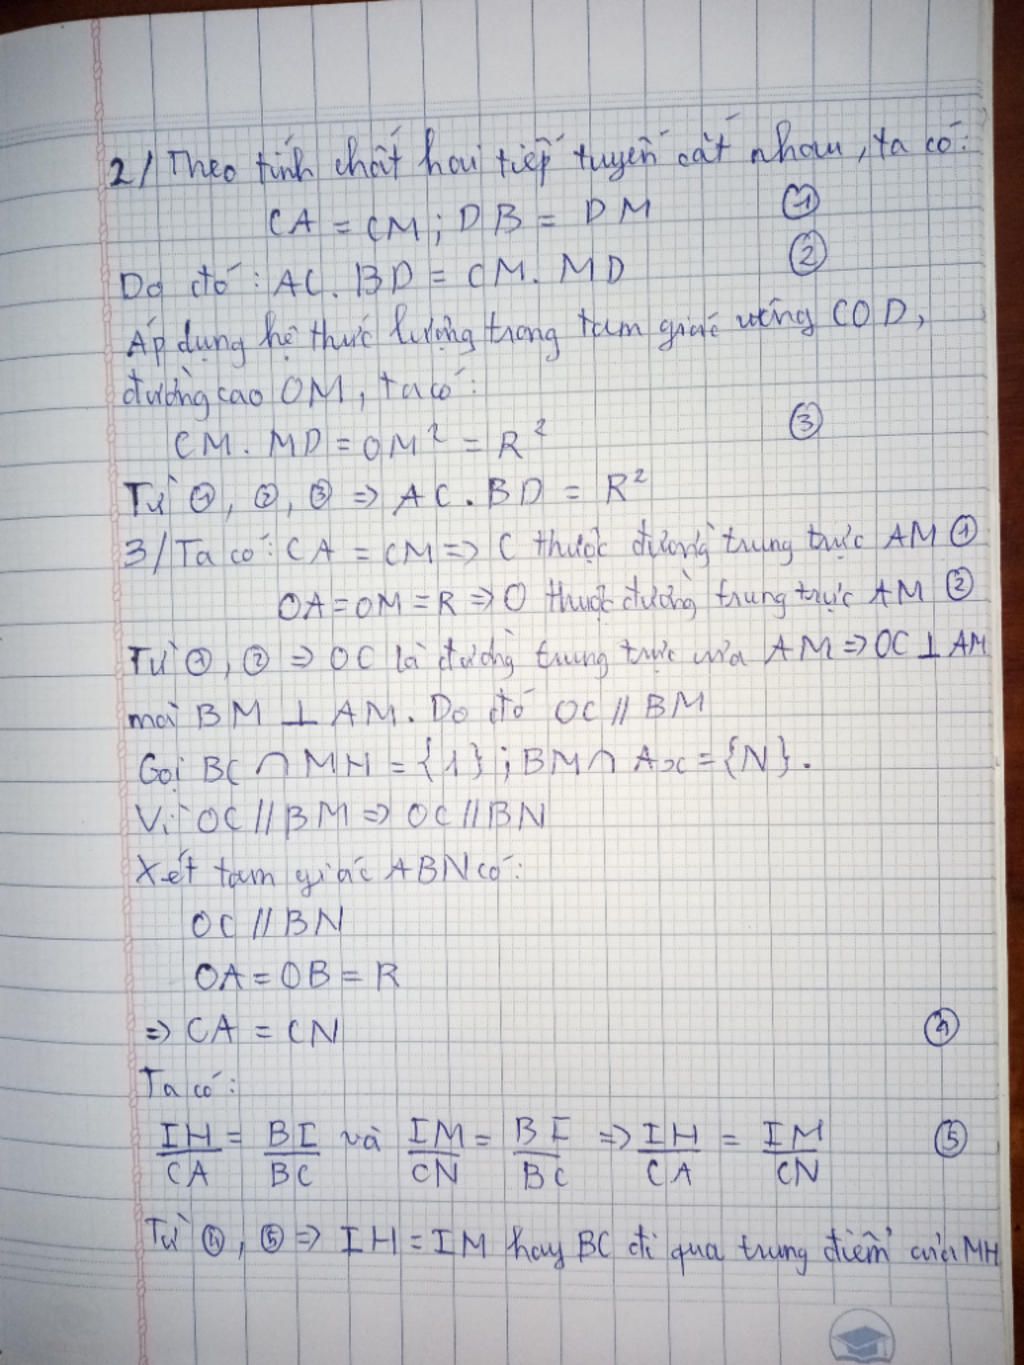 2/ Theo tính chất hai tiếp tuyến cắt nhau, ta có:
CA = CM; DB = DM ①
Do đó: AC. BD = CM. MD ②
Áp dụng hệ thức lượng trong tam giác vuông COD,
đường cao OM, ta có:
CM. MD = OM² = R² ③
Từ ①, ②, ③ => AC. BD = R²
3/ Ta có: CA = CM => C thuộc đường trung trực AM ①
OA = OM = R => O thuộc đường trung trực AM ②
Từ ①, ② => OC là đường trung trực của AM => OC ⊥ AM
mà BM ⊥ AM. Do đó OC // BM
Gọi BC ∩ MH = {I}; BM ∩ Ax = {N}.
Vì OC // BM => OC // BN
Xét tam giác ABN có:
OC // BN
OA = OB = R
=> CA = CN ④
Ta có:
IH/CA = BI/BC và IM/CN = BI/BC => IH/CA = IM/CN ⑤
Từ ④, ⑤ => IH = IM hay BC đi qua trung điểm của MH